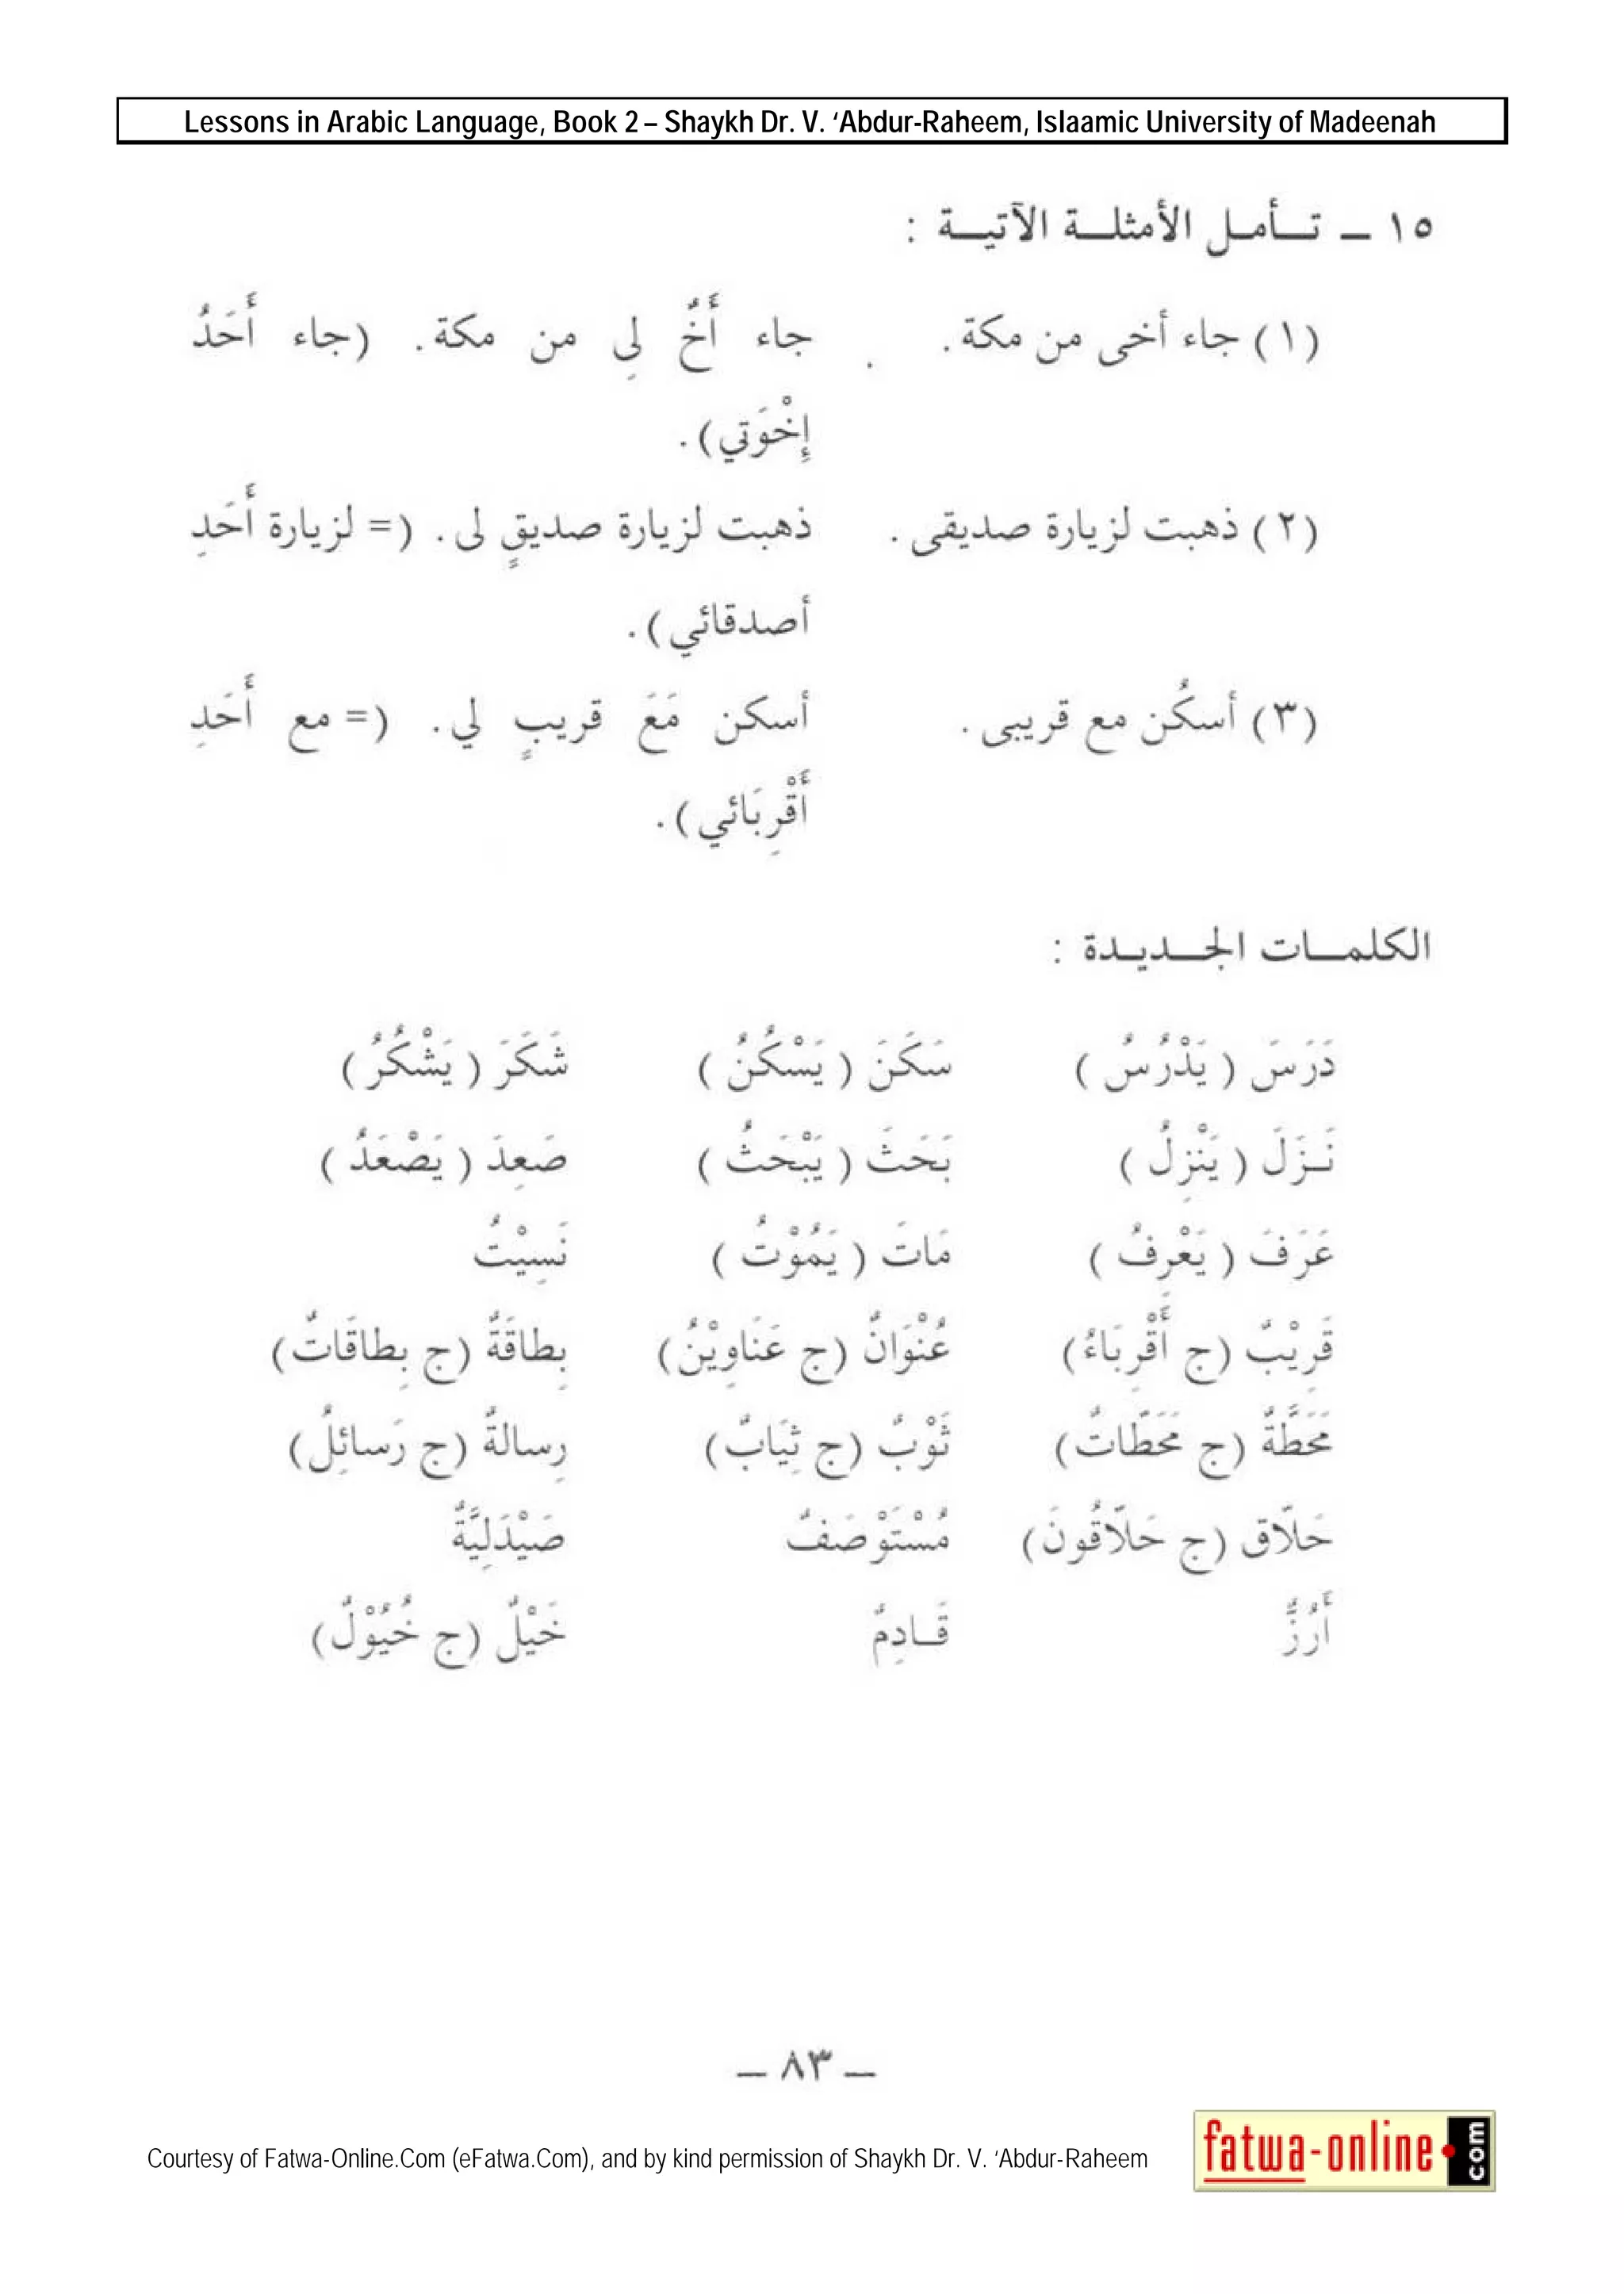 Lessons in Arabic Language, Book 2 – Shaykh Dr. V. ‘Abdur-Raheem, Islaamic University of Madeenah
١٥ ــ تـــأمــل الأمثلـــة الآتيـــة :
(١) جاء أخى من مكة . جاء أَخٌ لِي من مكة . (جاء أَحَدُ
إِخْوَتي) .
(٢) ذهبت لزيارة صديقى . ذهبت لزيارة صديقٍ لى . (= لزيارة أَحَدِ
أصدقائي) .
(٣) أسكُن مع قريبى . أسكن مَعَ قريبٍ لي . (= مع أَحَدِ
أَقْرِبَائي) .
الكلمـــات الجـــديـدة :
دَرَسَ ( يَدْرُسُ ) سَكَنَ ( يَسْكُنُ ) شَكَرَ ( يَشْكُرُ )
نَــزَلَ ( يَنْزِلُ ) بَحَثَ ( يَبْحَثُ ) صَعِدَ ( يَصْعَدُ )
عَرَفَ ( يَعْرِفُ ) مَاتَ ( يَمُوْتُ ) نَسِيْتُ
قَرِيْبٌ (ج أَقْرِبَاءُ) عُنْوَانٌ (ج عَنَاوِيْنُ) بِطاقَةٌ (ج بِطاقَاتٌ)
مَحَطَّةٌ (ج مَحَطَّاتٌ) ثَوْبٌ (ج ثِيَابٌ) رِسالةٌ (ج رَسائِلُ)
حَلاَّق (ج حَلاَّقُونَ) مُسْتَوْصَفٌ صَيْدَلِيَّةٌ
أَرُزٌّ قَــادِمٌ خَيْلٌ (ج خُيُوْلٌ)
ــ ٨٣ ــ
Courtesy of Fatwa-Online.Com (eFatwa.Com), and by kind permission of Shaykh Dr. V. ‘Abdur-Raheem
fatwa-online.com